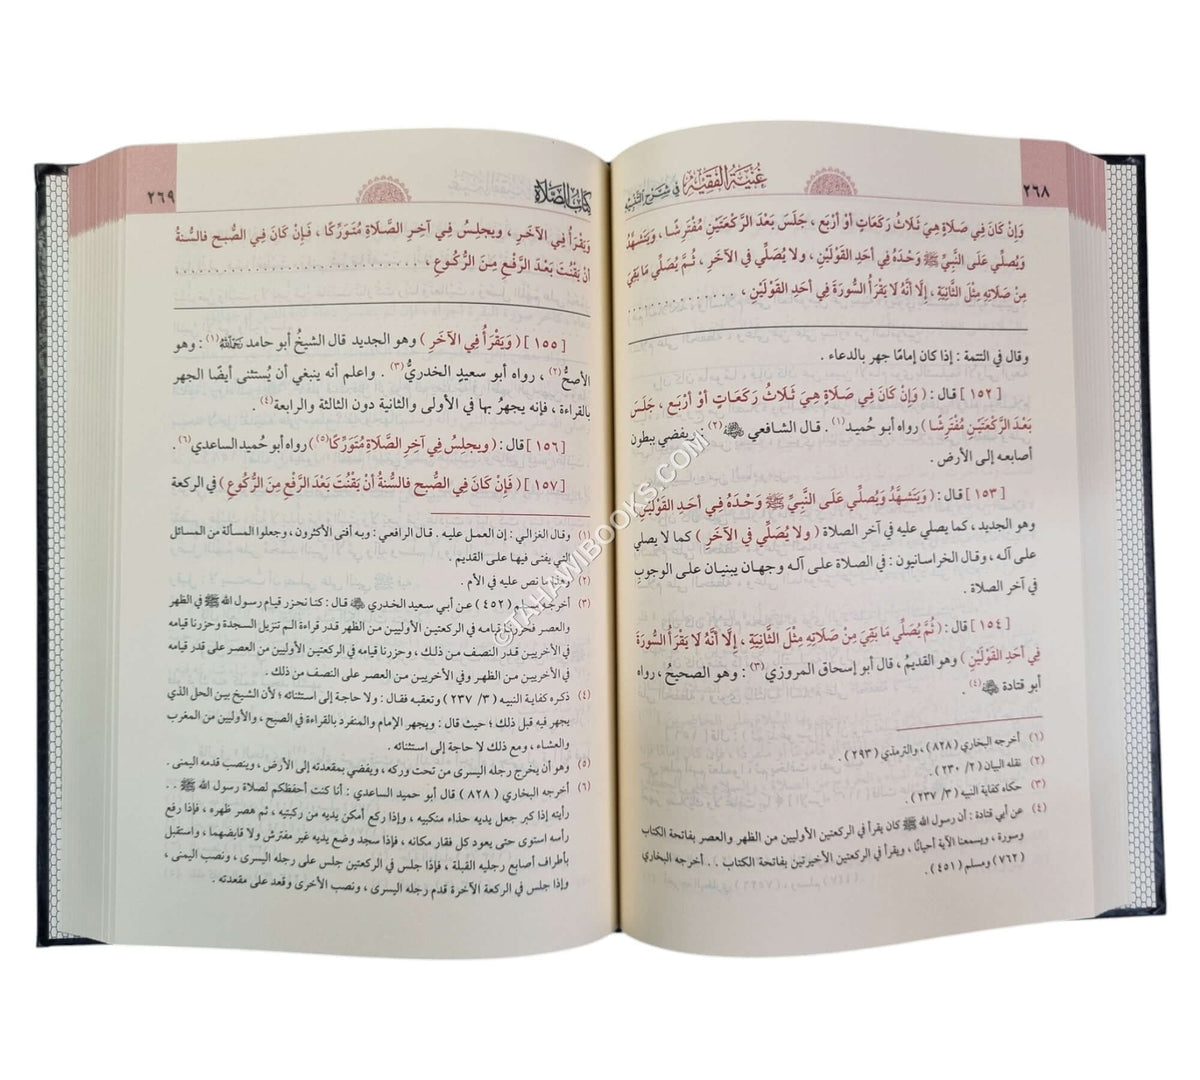 ٢٦٨
غُنْيَةُ الفَقِيْه فِي شَرْحِ التَّنْبِيْهِ
وَإِنْ كَانَ فِي صَلَاةٍ هِيَ ثَلَاثُ رَكَعَاتٍ أَوْ أَرْبَع ، جَلَسَ بَعْدَ الرَّكْعَتَيْنِ مُفْتَرِشًا ، وَيَتَشَهَّدُ
وَيُصلِّي عَلَى النَّبِيِّ ﷺ وَحْدَهُ فِي أَحَدِ القَوْلَيْنِ ، ولا يُصَلِّي في الآخَرِ ، ثُمَّ يُصَلِّي مَا بَقِيَ
مِنْ صَلَاتِهِ مِثْلَ الثَّانِيَةِ ، إِلَّا أَنَّهُ لَا يَقْرَأُ السُّورَةَ فِي أَحَدِ القَوْلَيْنِ ، . . . . . . . . . . . . . . .
وقال في التتمة : إذا كان إمامًا جهر بالدعاء .
[ ١٥٢ ] قال : ( وَإِنْ كَانَ فِي صَلَاةٍ هِيَ ثَلَاثُ رَكَعَاتٍ أَوْ أَرْبَع ، جَلَسَ
بَعْدَ الرَّكْعَتَيْنِ مُفْتَرِشًا ) رواه أبو حُميد(١) . قال الشافعي ﷺ(٢) : ويفضي ببطون
أصابعه إلى الأرض .
[ ١٥٣ ] قال : ( وَيَتَشَهَّدُ وَيُصَلِّي عَلَى النَّبِيِّ ﷺ وَحْدَهُ فِي أَحَدِ القَوْلَيْنِ )
وهو الجديد ، كما يصلي عليه في آخر الصلاة ( ولا يُصَلِّي في الآخَرِ ) كما لا يصلي
على آله ، وقال الخراسانيون : في الصلاة على آله وجهان يبنيان على الوجوب
في آخر الصلاة .
[ ١٥٤ ] قال : ( ثُمَّ يُصَلِّي مَا بَقِيَ مِنْ صَلَاتِهِ مِثْلَ الثَّانِيَةِ ، إِلَّا أَنَّهُ لَا يَقْرَأُ السُّورَةَ
فِي أَحَدِ القَوْلَيْنِ ) وهو القديمُ ، قال أبو إسحاق المروزي(٣) : وهو الصحيحُ ، رواه
أبو قتادة(٤) .
(١) أخرجه البخاري ( ٨٢٨ ) ، والترمذي ( ٢٩٣ ) .
(٢) نقله البيان ( ٢/ ٢٣٠ ) .
(٣) حكاه كفاية النبيه ( ٣/ ٢٣٧ ) .
(٤) عن أبي قتادة : أن رسول الله ﷺ كان يقرأ في الركعتين الأوليين من الظهر والعصر بفاتحة الكتاب
وسورة ، ويسمعنا الآية أحيانًا ، ويقرأ في الركعتين الأخيرتين بفاتحة الكتاب . . أخرجه البخاري
( ٧٦٢ ) ومسلم ( ٤٥١ ) .
كتاب الصَّلاة
٢٦٩
وَيَقْرَأُ فِي الآخَرِ ، ويجلِسُ فِي آخِرِ الصَّلاةِ مُتَوَرِّكًا ، فَإِنْ كَانَ فِي الصُّبحِ فالسُّنةُ
أنْ يَقْنُتَ بَعْدَ الرَّفْعِ مِنَ الرُّكُوعِ ، . . . . . . . . . . . . . . . . . . . . . . .
[ ١٥٥ ] ( وَيَقْرَأُ فِي الآخَرِ ) وهو الجديد قال الشيخُ أبو حامد رحمه الله(١) : وهو
الأصحُّ(٢) ، رواه أبو سعيدٍ الخدريُّ(٣) . واعلم أنه ينبغي أن يُستثنى أيضًا الجهر
بالقراءة ، فإنه يجهرُ بها في الأولى والثانية دون الثالثة والرابعة(٤) .
[ ١٥٦ ] قال : ( ويجلِسُ فِي آخِرِ الصَّلاةِ مُتَوَرِّكًا(٥) ) رواه أبو حُميد الساعدي(٦) .
[ ١٥٧ ] ( فَإِنْ كَانَ فِي الصُّبح فالسُّنةُ أنْ يَقْنُتَ بَعْدَ الرَّفْعِ مِنَ الرُّكُوعِ ) في الركعة
(١) وقال الغزالي : إن العمل عليه . قال الرافعي : وبه أفتى الأكثرون ، وجعلوا المسألة من المسائل
التي يفتى فيها على القديم .
(٢) وهذا ما نص عليه في الأم .
(٣) أخرجه مسلم ( ٤٥٢ ) عن أبي سعيد الخدري قال : كنا نحزر قيام رسول الله ﷺ في الظهر
والعصر فحزرنا قيامه في الركعتين الأوليين من الظهر قدر قراءة الم تنزيل السجدة وحزرنا قيامه
في الأخريين قدر النصف من ذلك ، وحزرنا قيامه في الركعتين الأوليين من العصر على قدر قيامه
في الأخريين من الظهر وفي الأخريين من العصر على النصف من ذلك .
(٤) ذكره كفاية النبيه ( ٣/ ٢٣٧ ) وتعقبه فقال : ولا حاجة إلى استثنائه ؛ لأن الشيخ بين الحل الذي
يجهر فيه قبل ذلك ؛ حيث قال : ويجهر الإمام والمنفرد بالقراءة في الصبح ، والأوليين من المغرب
والعشاء ، ومع ذلك لا حاجة إلى استثنائه .
(٥) وهو أن يخرج رجله اليسرى من تحت وركه ، ويفضي بمقعدته إلى الأرض ، وينصب قدمه اليمنى .
(٦) أخرجه البخاري ( ٨٢٨ ) قال أبو حميد الساعدي : أنا كنت أحفظكم لصلاة رسول الله ﷺ . .
رأيته إذا كبر جعل يديه حذاء منكبيه ، وإذا ركع أمكن يديه من ركبتيه ، ثم هصر ظهره ، فإذا رفع
رأسه استوى حتى يعود كل فقار مكانه ، فإذا سجد وضع يديه غير مفترش ولا قابضهما ، واستقبل
بأطراف أصابع رجليه القبلة ، فإذا جلس في الركعتين جلس على رجله اليسرى ، ونصب اليمنى ،
وإذا جلس في الركعة الآخرة قدم رجله اليسرى ، ونصب الأخرى وقعد على مقعدته .
©TAHAMIBOOKS.COM